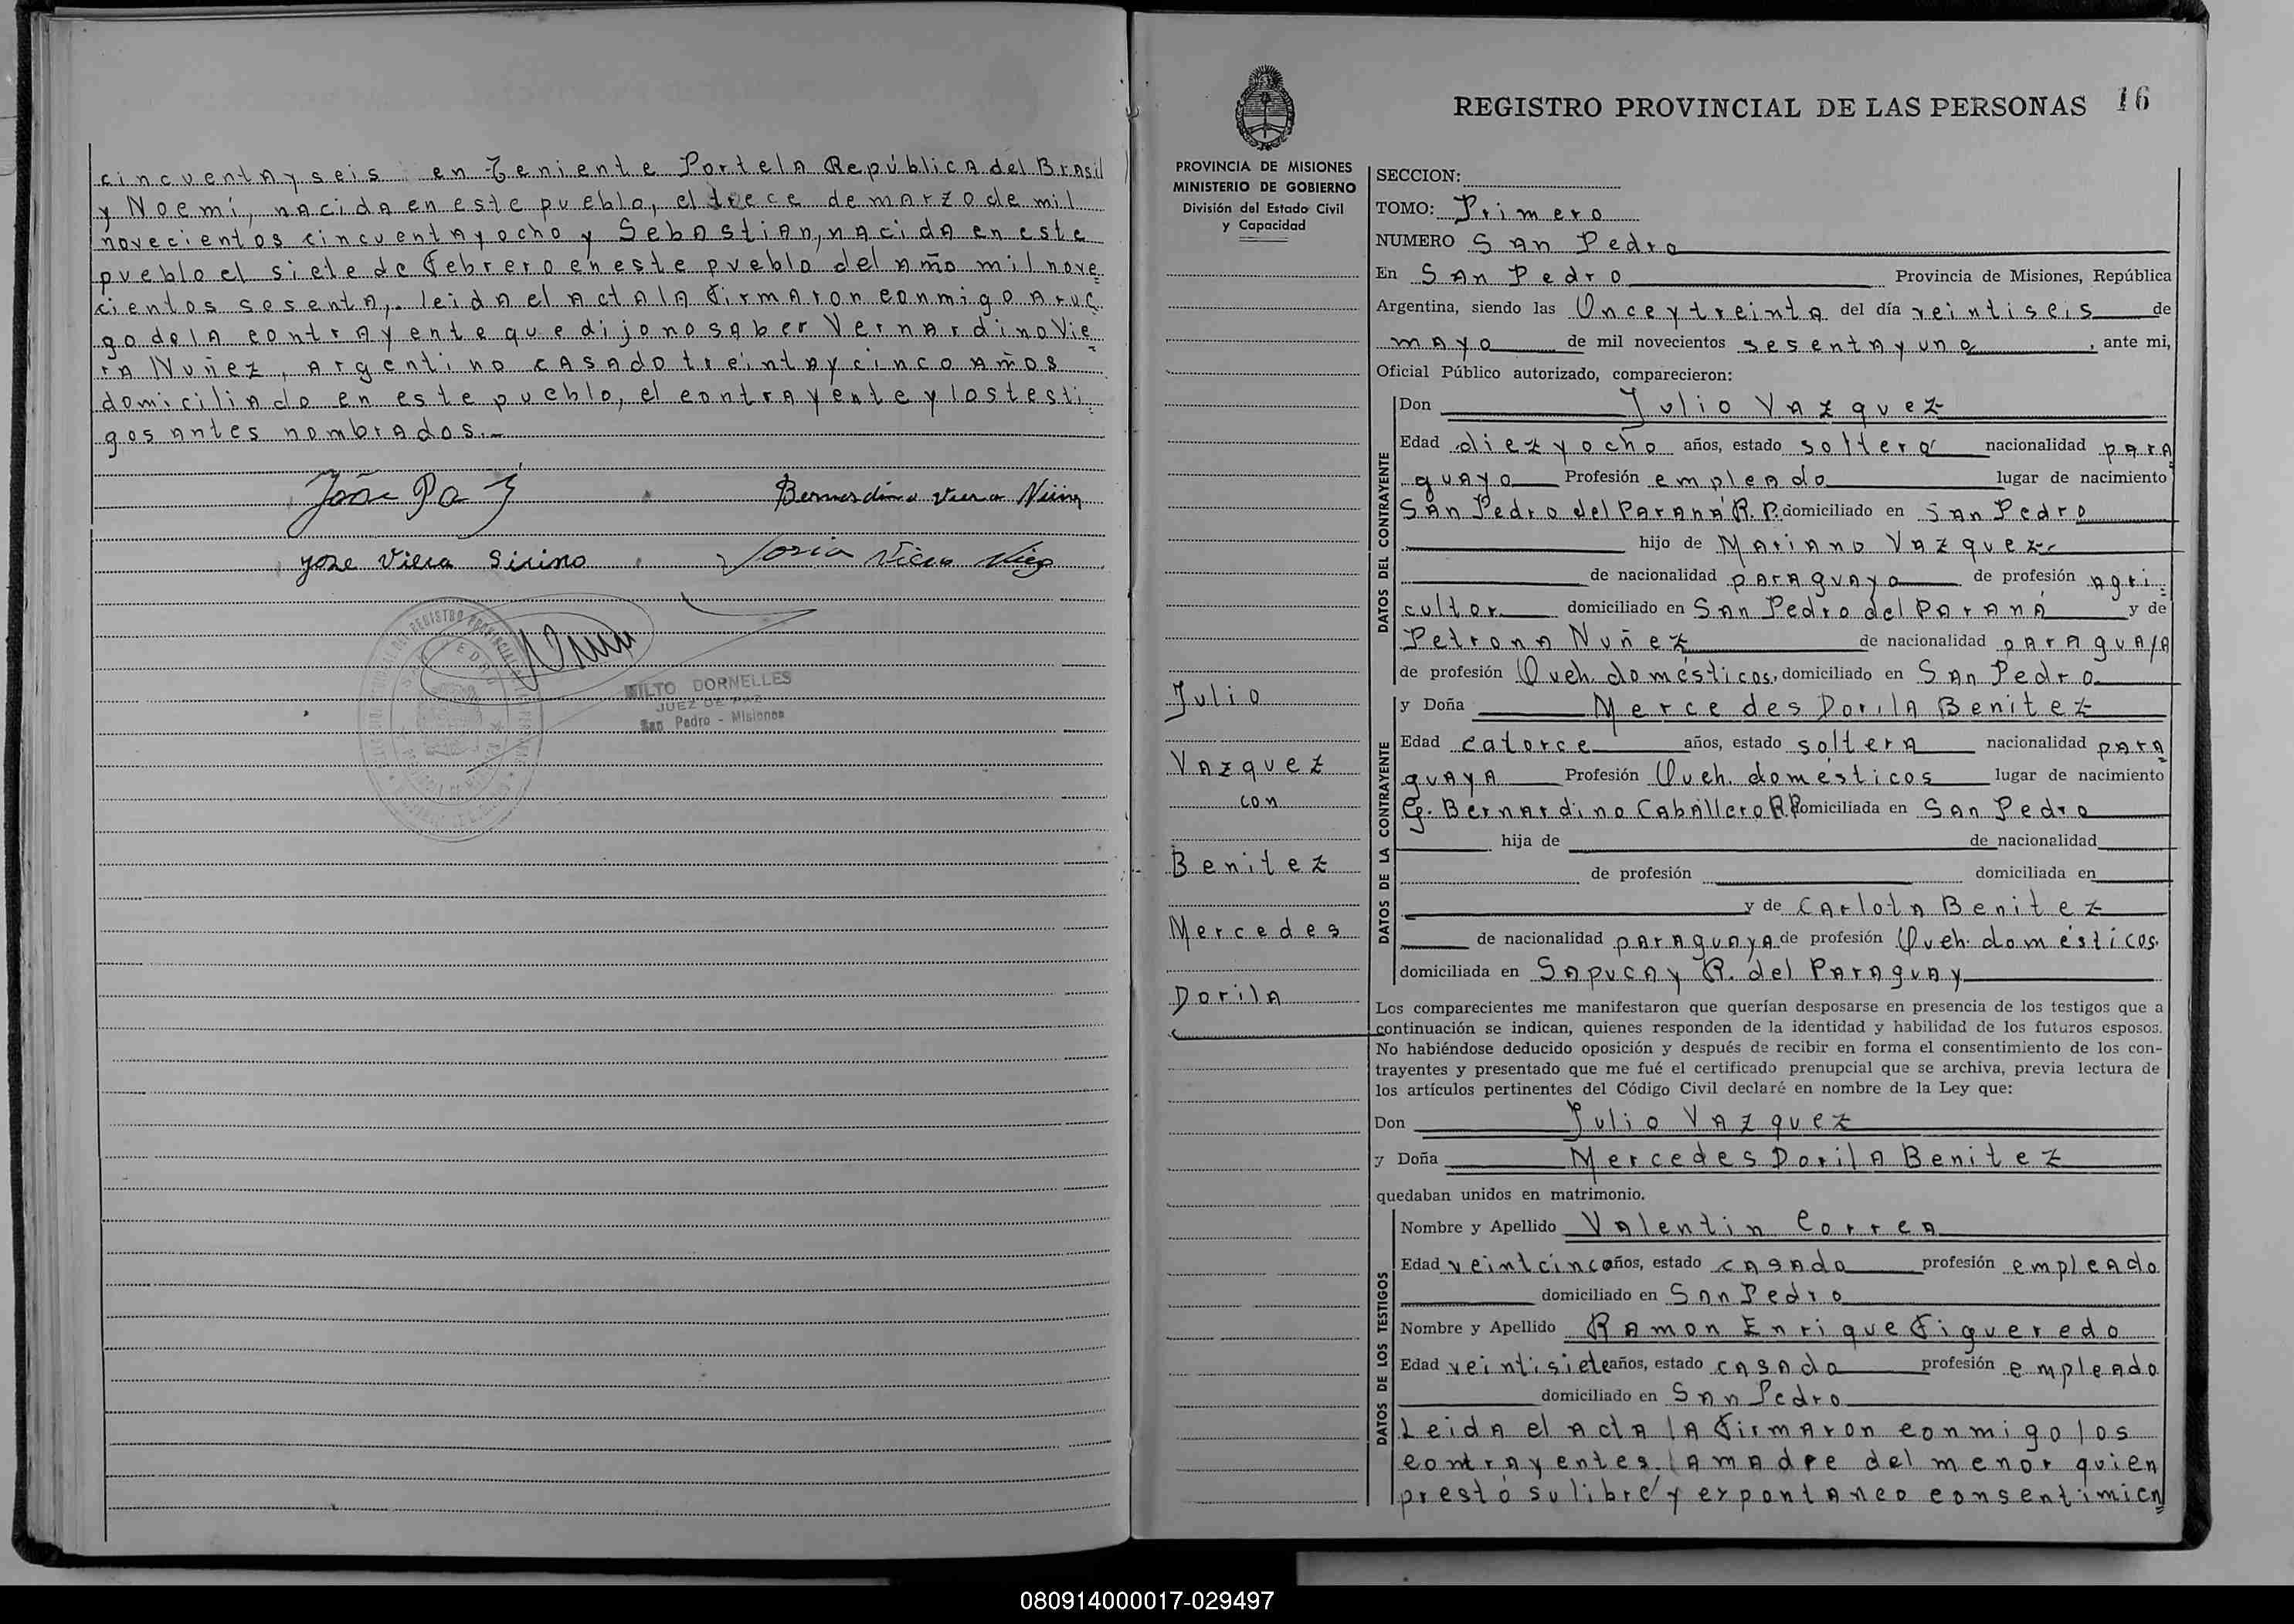 cincuentayseis en Teniente Portela República del Brasil
y Noemí, nacida en este pueblo, el trece de marzo de mil
novecientos cincuentayocho y Sebastian, nacida en este
pueblo el siete de febrero en este pueblo del año mil nove=
cientos sesenta,. leida el acta la firmaron conmigo a rue
go de la contrayente que dijo no saber Vernardino Vie
ra Nuñez, argentino casado treintaycinco años
domiciliado en este pueblo, el contrayente y los testi
gos antes nombrados.-
Bernardino Viera
Jose Viera Sirino
MILTO DORNELLES
JUEZ DE PAZ
San Pedro - Misiones
REGISTRO PROVINCIAL DE LAS PERSONAS 16
PROVINCIA DE MISIONES
MINISTERIO DE GOBIERNO
División del Estado Civil
y Capacidad
Julio
Vazquez
con
Benitez
Mercedes
Dorila
SECCION:
TOMO: Primero
NUMERO San Pedro
En San Pedro Provincia de Misiones, República
Argentina, siendo las Onceytreinta del día veintiseis de
mayo de mil novecientos sesentayuno, ante mi,
Oficial Público autorizado, comparecieron:
DATOS DEL CONTRAYENTE
Don Julio Vazquez
Edad diezyocho años, estado soltero nacionalidad para
guayo Profesión empleado lugar de nacimiento
San Pedro del Paraná R. P. domiciliado en San Pedro
hijo de Mariano Vazquez
de nacionalidad paraguayo de profesión agri=
cultor domiciliado en San Pedro del Paraná y de
Petrona Nuñez de nacionalidad paraguaya
de profesión Queh. domésticos, domiciliado en San Pedro
DATOS DE LA CONTRAYENTE
y Doña Mercedes Dorila Benitez
Edad catorce años, estado soltera nacionalidad para=
guaya Profesión Queh. domésticos lugar de nacimiento
G. Bernardino Caballero R.P. domiciliada en San Pedro
hija de de nacionalidad
de profesión domiciliada en
y de Carlota Benitez
de nacionalidad paraguaya de profesión Queh. domésticos.
domiciliada en Sapucay R. del Paraguay
Los comparecientes me manifestaron que querían desposarse en presencia de los testigos que a
continuación se indican, quienes responden de la identidad y habilidad de los futuros esposos.
No habiéndose deducido oposición y después de recibir en forma el consentimiento de los con-
trayentes y presentado que me fué el certificado prenupcial que se archiva, previa lectura de
los artículos pertinentes del Código Civil declaré en nombre de la Ley que:
Don Julio Vazquez
y Doña Mercedes Dorila Benitez
quedaban unidos en matrimonio.
DATOS DE LOS TESTIGOS
Nombre y Apellido Valentin Correa
Edad veintcinco años, estado casado profesión empleado
domiciliado en San Pedro
Nombre y Apellido Ramon Enrique Figueredo
Edad veintisiete años, estado casado profesión empleado
domiciliado en San Pedro
Leida el acta la firmaron conmigo los
contrayentes, la madre del menor quien
prestó su libre y expontaneo consentimien=
080914000017-029497